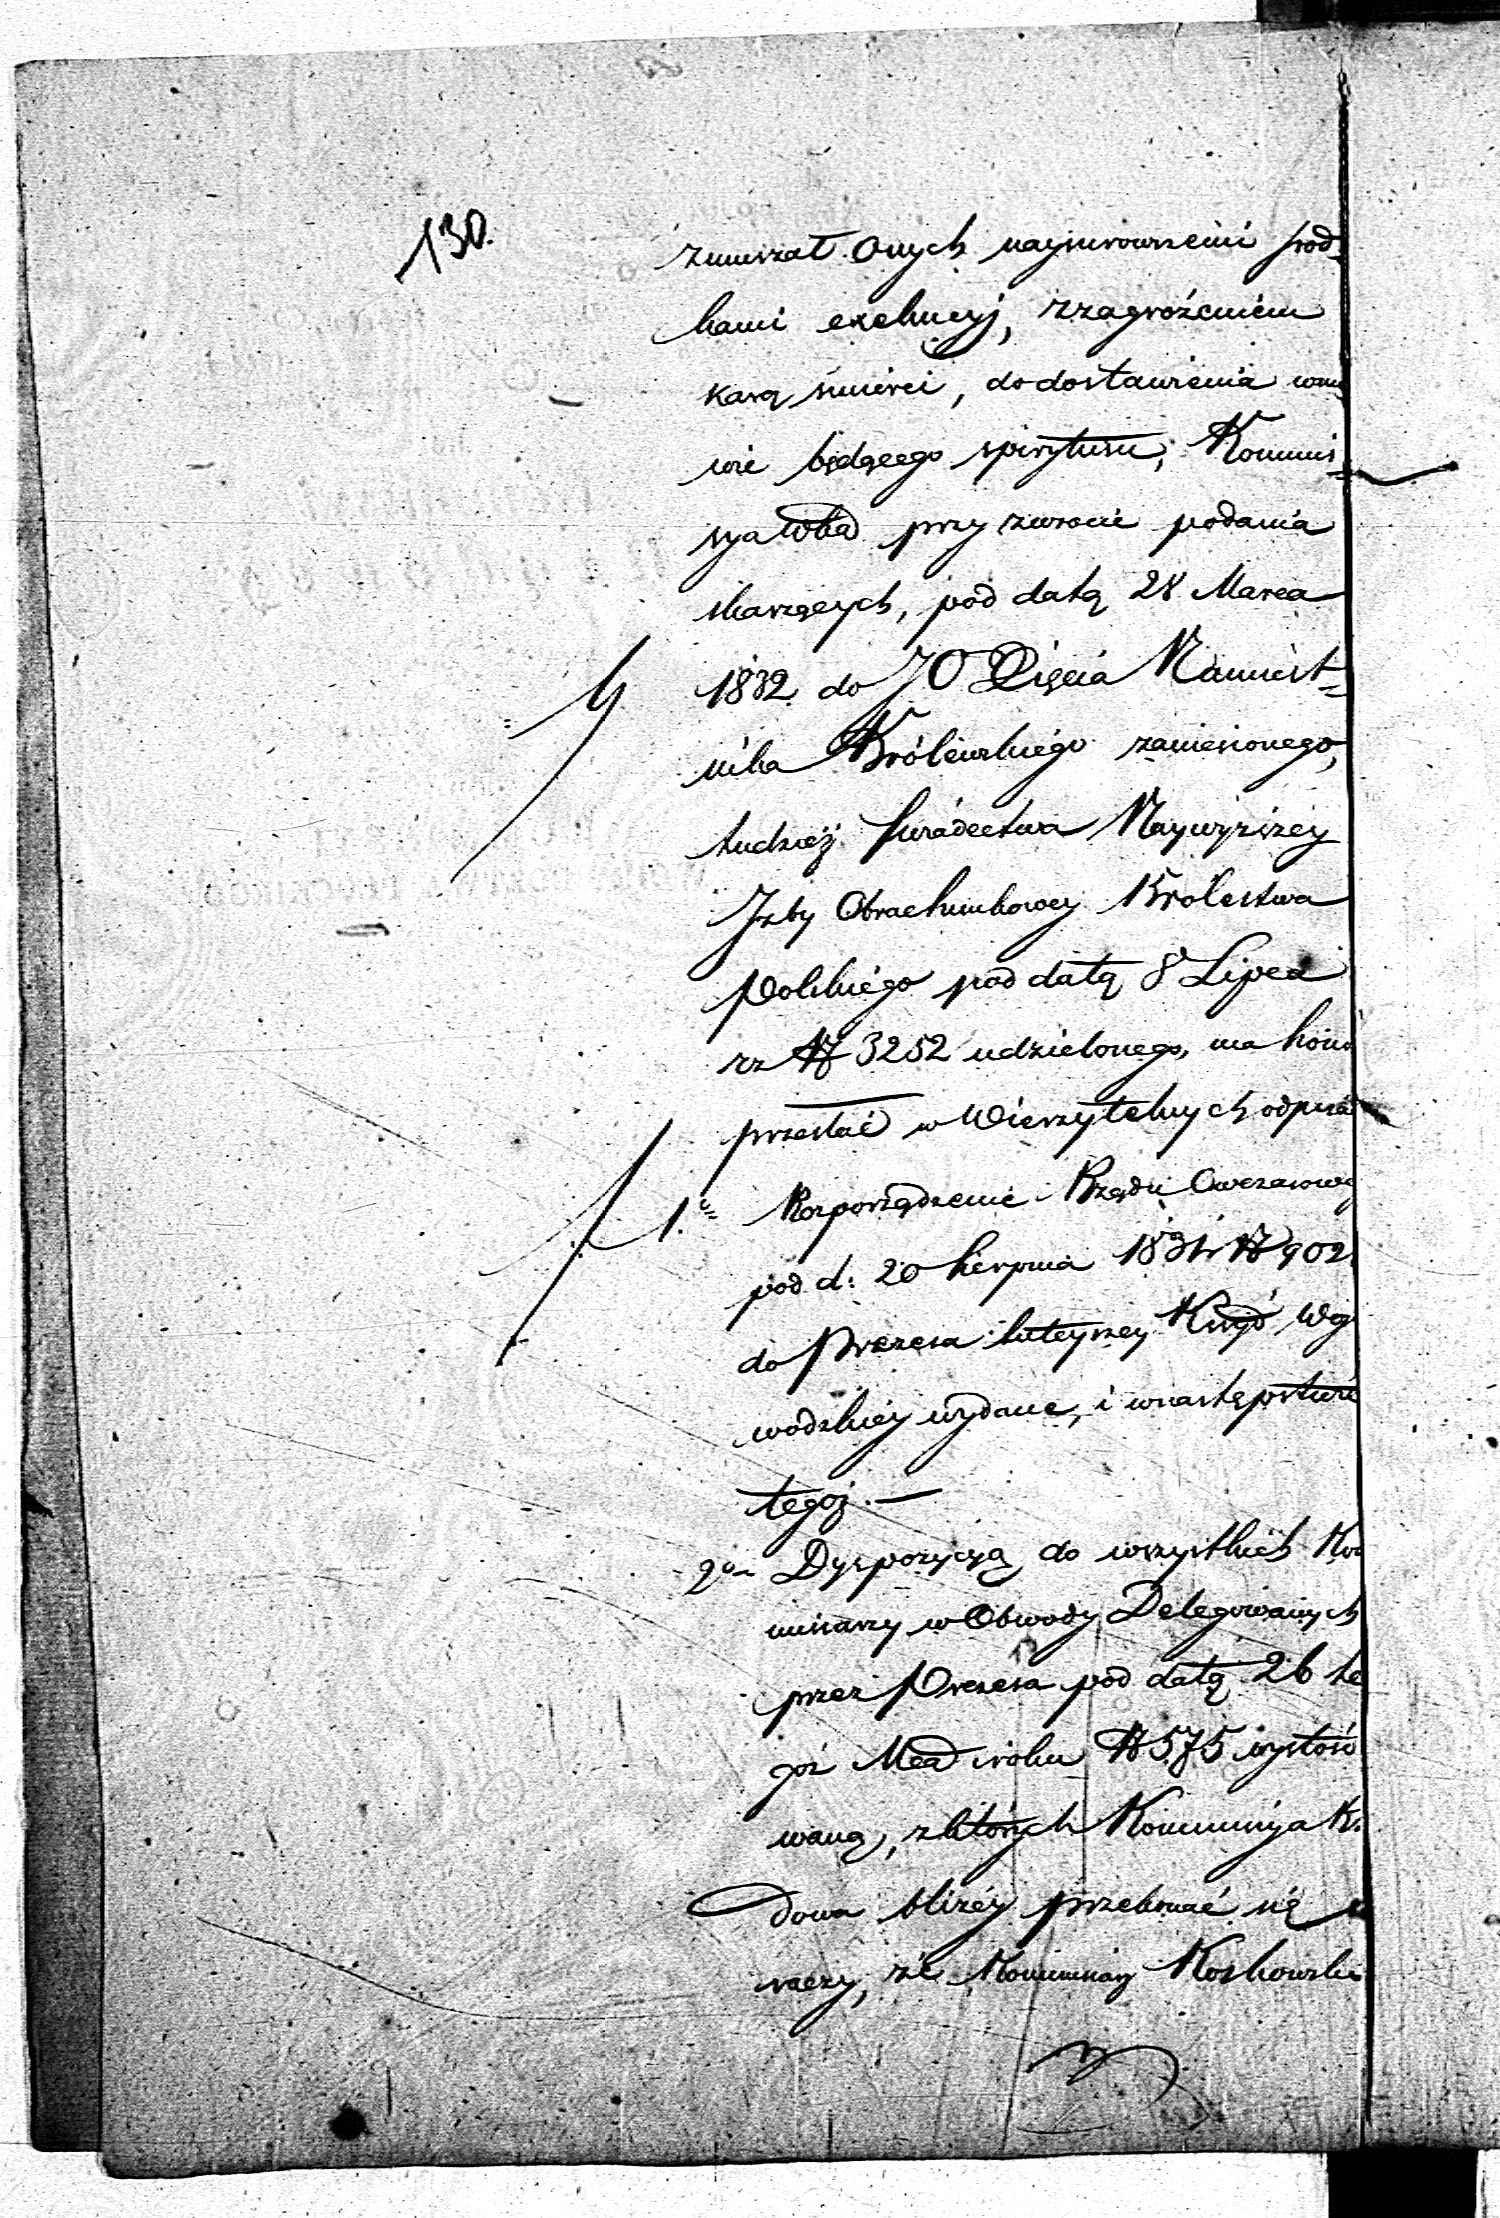 130.
zmuszał onych naysurowszemi środ=
kami exekucyj, z zagrożeniem
karą śmierci, do dostawienia
wie będącego spirytusu, Kommis=
sya Wba przy zwrocie podania
skarzących, pod datą 28 Marca
1832 do JO Xięcia Namiest=
nika Królewskiego zaniesionego,
tudzież świadectwa Naywyższey
Izby Obrachunkowey Królestwa
Polskiego pod datą 8 Lipca
rz № 3252 udzielonego, ma hono
przesłać w Wierzytelnych odpisa
1. Rozporządzenie Rządu Owczasowe
pod d: 20 Sierpnia 1831 r № 902
do Prezesa tuteyszey
wodzkiey wydane, i wnastępstwie
tegoż. —
2o Dyspozycyą do wszystkich Ko
missarzy w Obwody Delegowanych
przez Prezesa pod datą 26 te
goż Mca i roku № 575 wystóso
waną, z których Kommissya Rz
dowa bliżey przekonać się
raczy, że Kommissarz Koskowski